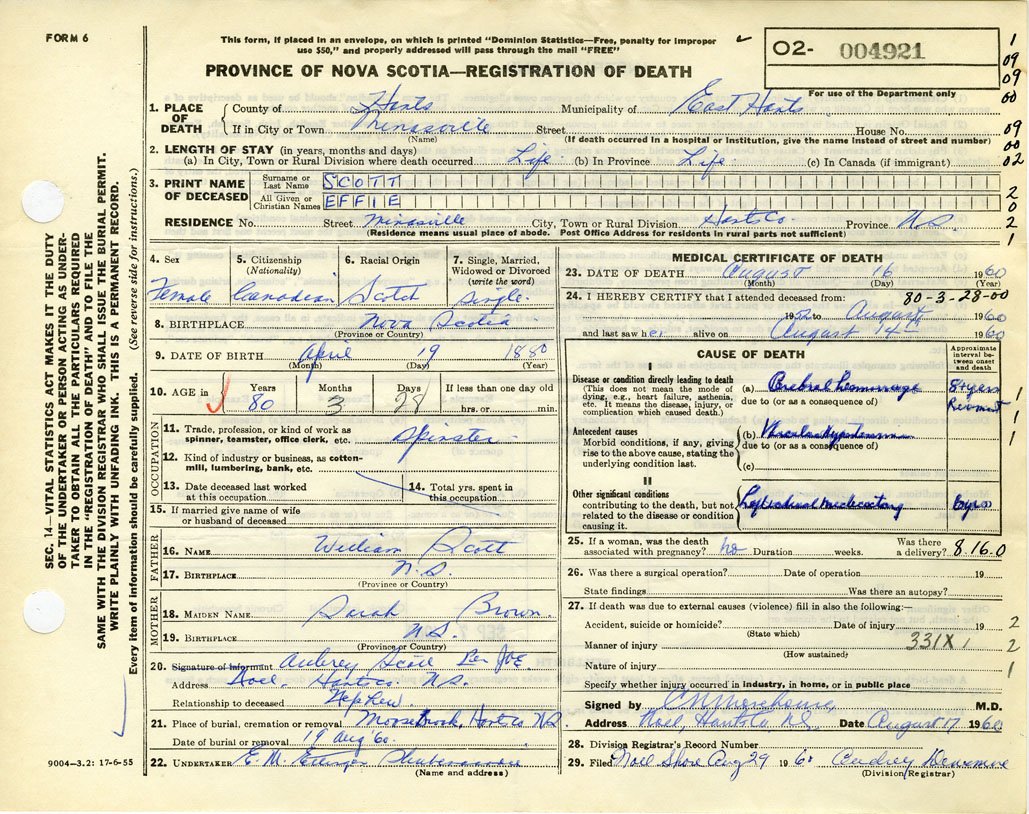 FORM 6
This form, if placed in an envelope, on which is printed "Dominion Statistics—Free, penalty for improper
use $50," and properly addressed will pass through the mail "FREE"
✓
O2- 004921
For use of the Department only
PROVINCE OF NOVA SCOTIA—REGISTRATION OF DEATH
1
09
09
00
09
00
02
2
0
2
1
SEC. 14—VITAL STATISTICS ACT MAKES IT THE DUTY
OF THE UNDERTAKER OR PERSON ACTING AS UNDER-
TAKER TO OBTAIN ALL THE PARTICULARS REQUIRED
IN THE "REGISTRATION OF DEATH" AND TO FILE THE
SAME WITH THE DIVISION REGISTRAR WHO SHALL ISSUE THE BURIAL PERMIT.
WRITE PLAINLY WITH UNFADING INK. THIS IS A PERMANENT RECORD.
Every item of information should be carefully supplied. (See reverse side for instructions.)
1. PLACE OF DEATH
County of Hants Municipality of East Hants
If in City or Town Minasville Street House No.
(Name) (If death occurred in a hospital or institution, give the name instead of street and number)
2. LENGTH OF STAY (in years, months and days)
(a) In City, Town or Rural Division where death occurred Life (b) In Province Life (c) In Canada (if immigrant)
3. PRINT NAME OF DECEASED
Surname or Last Name SCOTT
All Given or Christian Names EFFIE
RESIDENCE No. Street Minasville City, Town or Rural Division Hants Co. Province N.S.
(Residence means usual place of abode. Post Office Address for residents in rural parts not sufficient)
4. Sex 5. Citizenship 6. Racial Origin 7. Single, Married,
(Nationality) Widowed or Divorced
(write the word)
Female Canadian Scotch Single
8. BIRTHPLACE Nova Scotia
(Province or Country)
9. DATE OF BIRTH April 19 1880
(Month) (Day) (Year)
10. AGE in Years Months Days If less than one day old
80 3 28 hrs. or min.
OCCUPATION
11. Trade, profession, or kind of work as
spinner, teamster, office clerk, etc. Spinster
12. Kind of industry or business, as cotton-
mill, lumbering, bank, etc.
13. Date deceased last worked 14. Total yrs. spent in
at this occupation this occupation
15. If married give name of wife
or husband of deceased
FATHER
16. NAME William Scott
17. BIRTHPLACE N.S.
(Province or Country)
MOTHER
18. MAIDEN NAME Sarah Brown
19. BIRTHPLACE N.S.
(Province or Country)
20. Signature of informant Aubrey Scott Per JOE
Address Noel, Hants Co. N.S.
Relationship to deceased Nephew
21. Place of burial, cremation or removal Moose Brook, Hants Co N.S.
Date of burial or removal 19 Aug '60.
22. UNDERTAKER E. M. Ettinger
(Name and address)
9004—3.2: 17-6-55
MEDICAL CERTIFICATE OF DEATH
23. DATE OF DEATH August 16 1960
(Month) (Day) (Year)
24. I HEREBY CERTIFY that I attended deceased from: 80-3-28-00
1952 to August 1960
and last saw her alive on August 14th 1960
CAUSE OF DEATH
Approximate
interval be-
tween onset
and death
I
Disease or condition directly leading to death
(This does not mean the mode of
dying, e.g., heart failure, asthenia,
etc. It means the disease, injury, or
complication which caused death.)
(a) Cerebral hemmorage 8+ yrs
due to (or as a consequence of)
1
Antecedent causes
Morbid conditions, if any, giving
rise to the above cause, stating the
underlying condition last.
(b)
due to (or as a consequence of)
(c)
1
1
II
Other significant conditions
contributing to the death, but not
related to the disease or condition
causing it.
6 yrs
25. If a woman, was the death Was there
associated with pregnancy? no Duration weeks. a delivery? 8.16.0
26. Was there a surgical operation? Date of operation 19
State findings Was there an autopsy?
27. If death was due to external causes (violence) fill in also the following:—
Accident, suicide or homicide? Date of injury 19 2
(State which)
Manner of injury 331X1 2
(How sustained)
Nature of injury 1
Specify whether injury occurred in industry, in home, or in public place
Signed by M.D.
Address Noel, Hants Co, N.S. Date August 17 1960
28. Division Registrar's Record Number
29. Filed Noel Shore Aug 29 1960 Audrey
(Division Registrar)